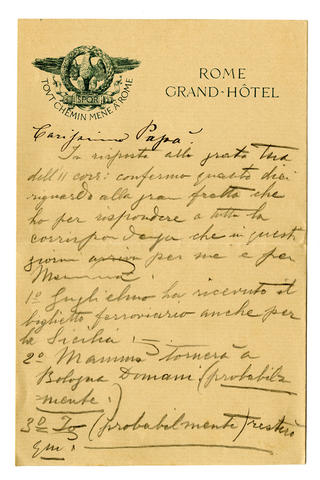 SPQR
TOUT CHEMIN MÈNE A ROME
ROME
GRAND-HÔTEL
Carissimo Papà
In risposta alla grata tua
dell'11 corr: confermo quanto dici
riguardo alla gran fretta che
ho per rispondere a tutta la
corrispondenza che in questi
giorni per me e per
Mamma:
1º Guglielmo ha ricevuto il
biglietto ferroviario anche per
la Sicilia:
2º Mamma tornerà a
Bologna Domani (probabil=
mente):
3º Io (probabilmente) resterò
qui: